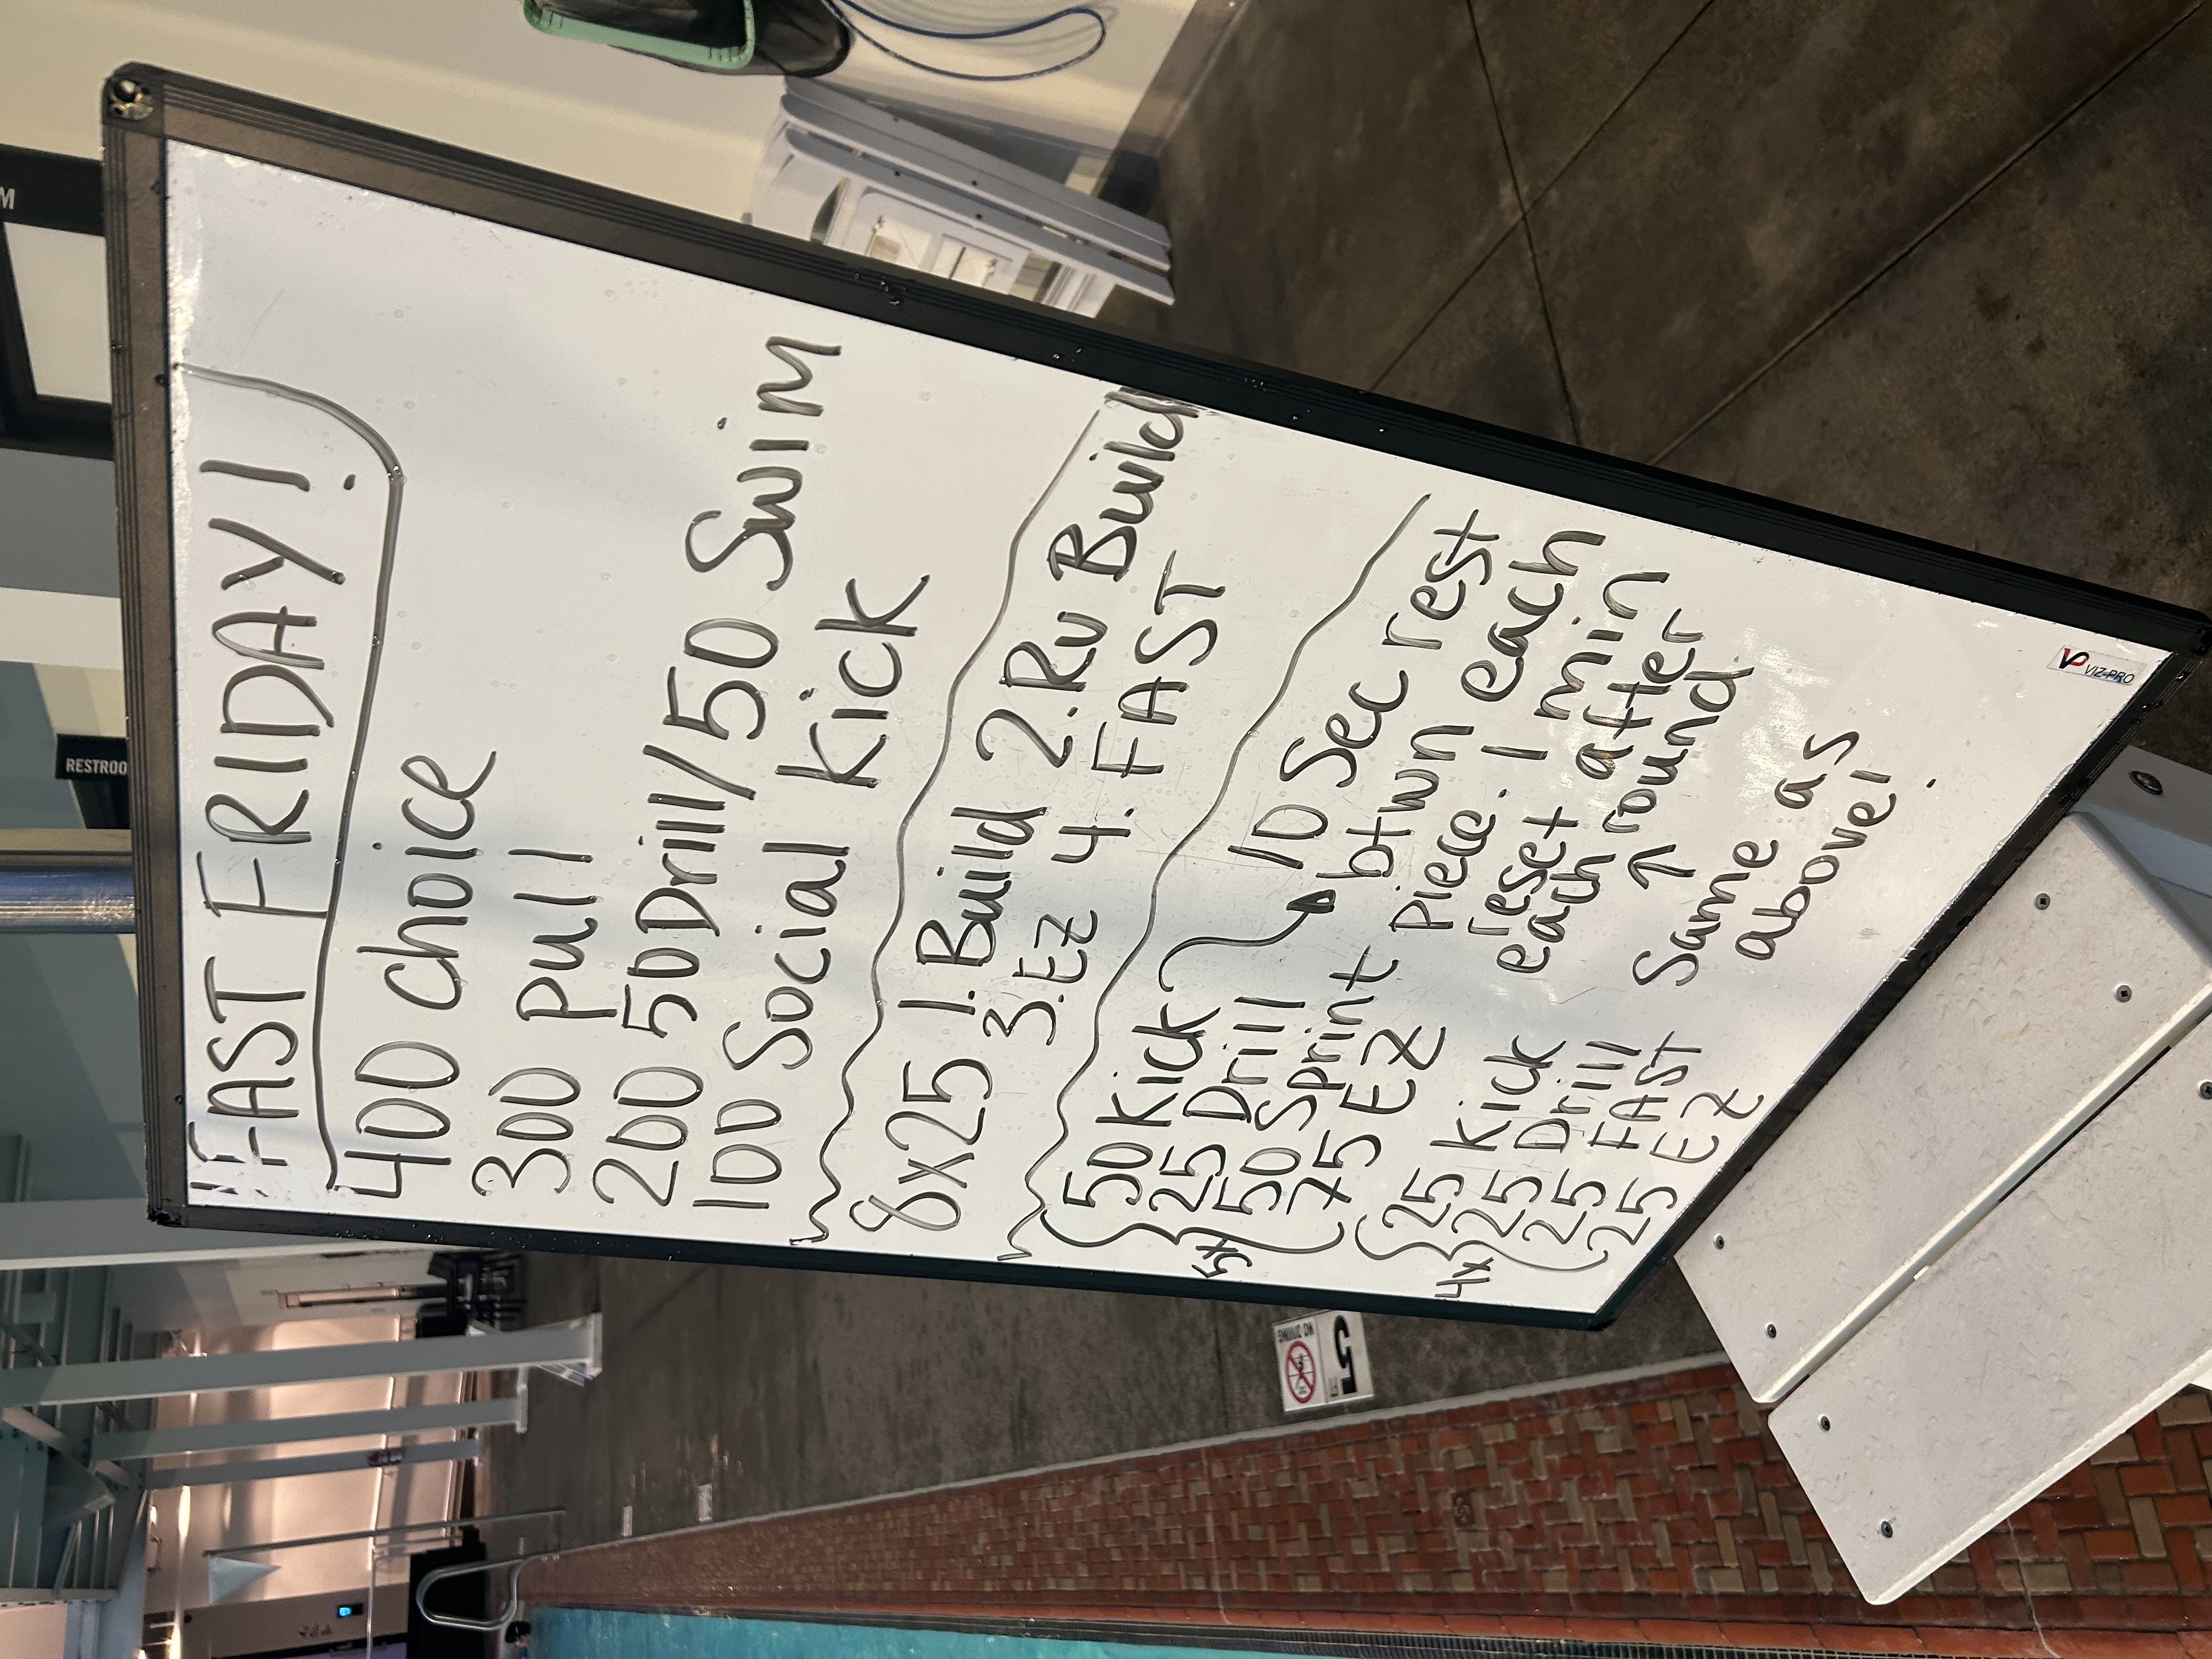 FAST FRIDAY!
400 Choice
300 Pull
200 50 Drill/50 Swim
100 Social Kick
8x25 1. Build 2. Rv Build
3. EZ 4. FAST
5x
50 Kick
25 Drill
50 Sprint
75 EZ
10 Sec rest
btwn each
Piece. 1 min
reset after
each round
4x
25 Kick
25 Drill
25 FAST
25 EZ
↑
Same as
above!
VP VIZ-PRO
RESTROO
M
NO DIVING
5